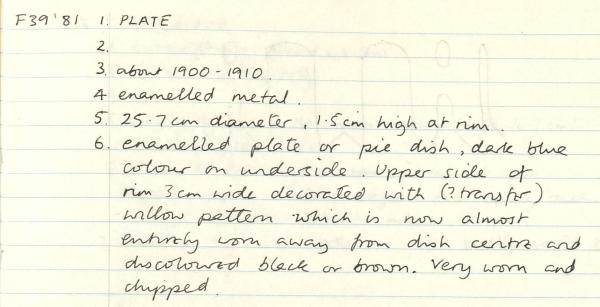 F39'81 1. PLATE
2.
3. about 1900-1910.
4 enamelled metal.
5. 25.7cm diameter, 1.5cm high at rim.
6. enamelled plate or pie dish, dark blue
colour on underside. Upper side of
rim 3cm wide decorated with (?transfer)
willow pattern which is now almost
entirely worn away from dish centre and
discoloured black or brown. Very worn and
chipped.